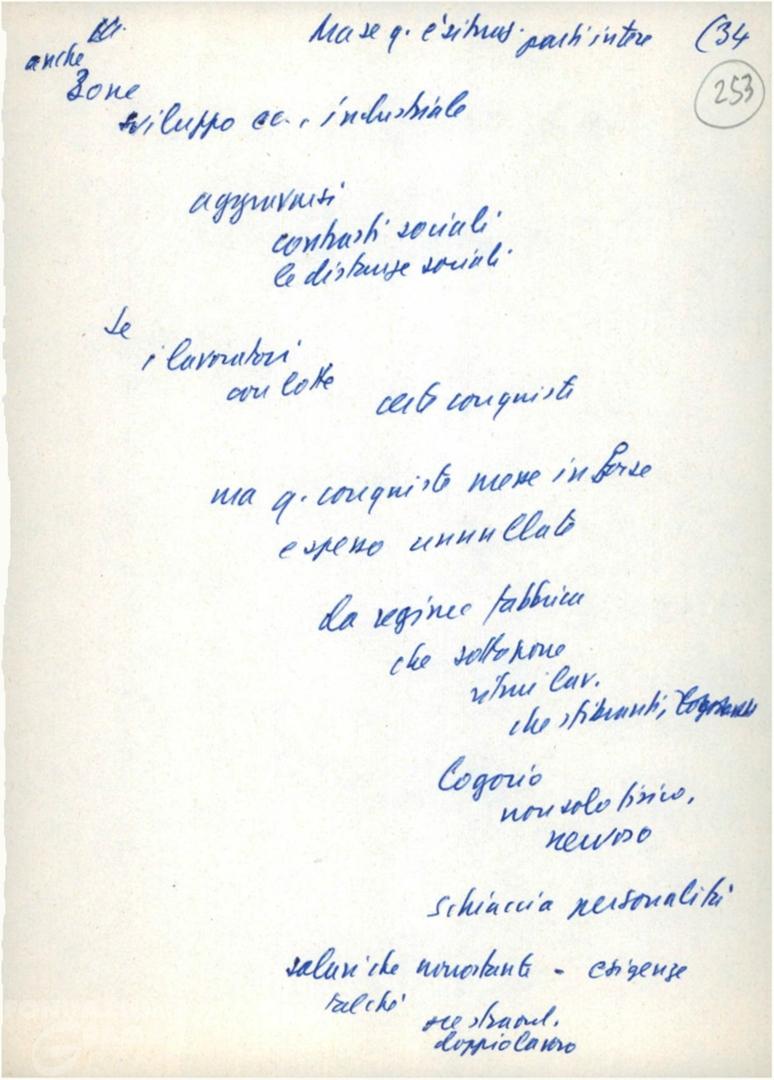 Ma se q. è situaz. parti intere (34
253
anche
zone
sviluppo ec., industriale
aggravarsi
contrasti sociali
le distanze sociali
se
i lavoratori
con lotte
certe conquiste
ma q. conquiste messe in forse
e spesso annullate
da regime fabbrica
che sottopone
ritmi lav.
che sfibranti,
logorio
non solo fisico,
nervoso
schiaccia personalità
salari che nonostante - esigenze
talché
straord.
doppio lavoro